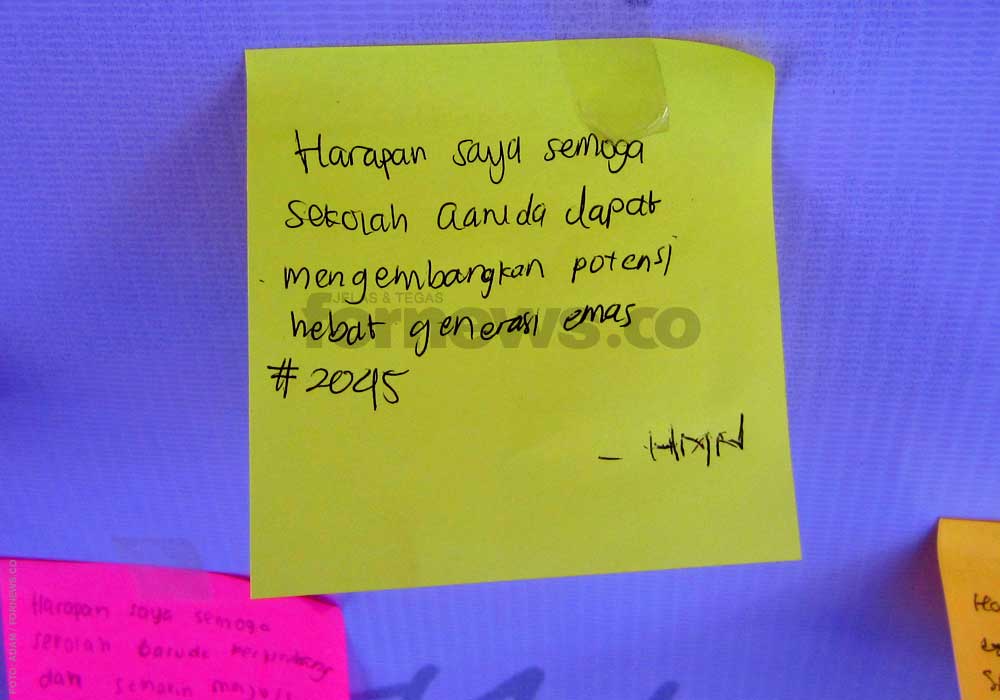 Harapan saya semoga
sekolah Garuda dapat
mengembangkan potensi
hebat generasi emas
#2045
JELAS & TEGAS
fornews.co
Harapan saya semoga
sekolah Garuda
dan semakin
FOTO: ADAM / FORNEWS.CO